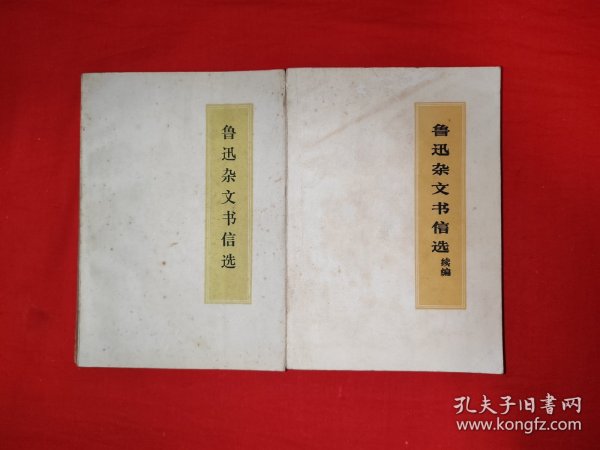 鲁迅杂文书信选
鲁迅杂文书信选
续编
孔夫子旧书网
www.kongfz.com